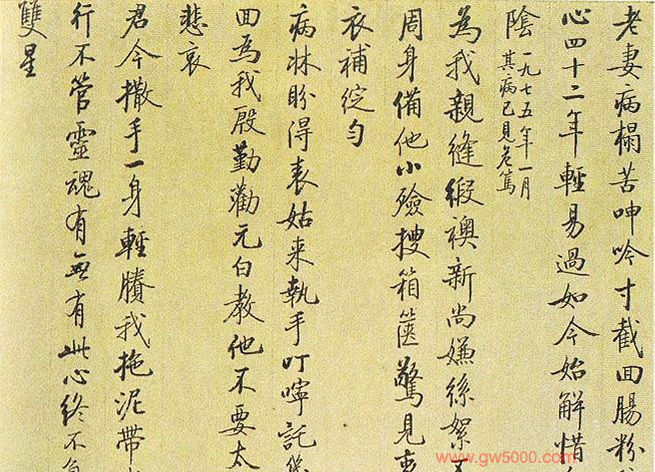 老妻病榻苦呻吟寸截回腸粉
心四十二年輕易過如今始解惜
陰一九七五年一月其病已見危篤
為我親縫緞襖新尚嫌絲絮
周身備他小殮搜箱篋驚見衷
衣補綻勻
病牀盼得表姑来執手叮嚀託
回為我殷勤勸元白教他不要太
悲哀
君今撒手一身輕賸我拖泥帶
行不管靈魂有無有此心終不
雙星
www.gw5000.com